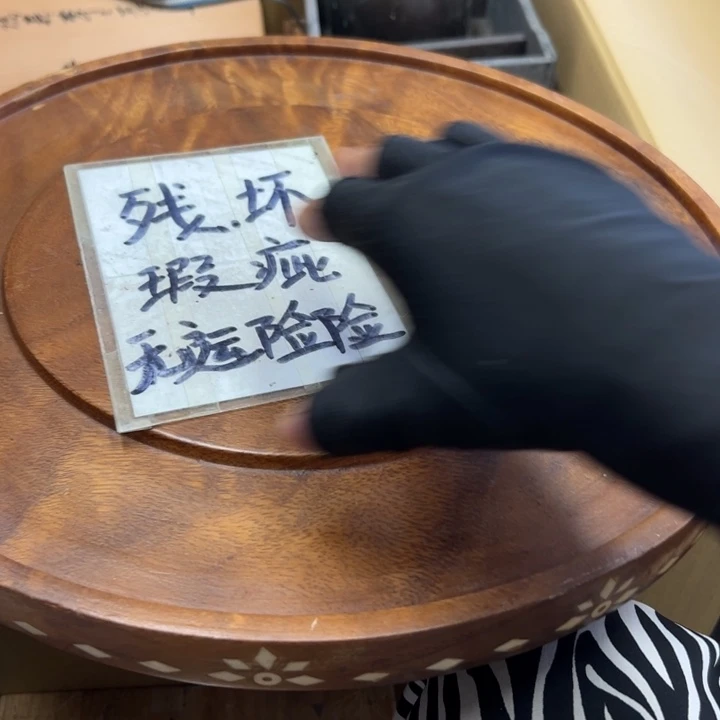 残.坏
瑕疵
无运险险